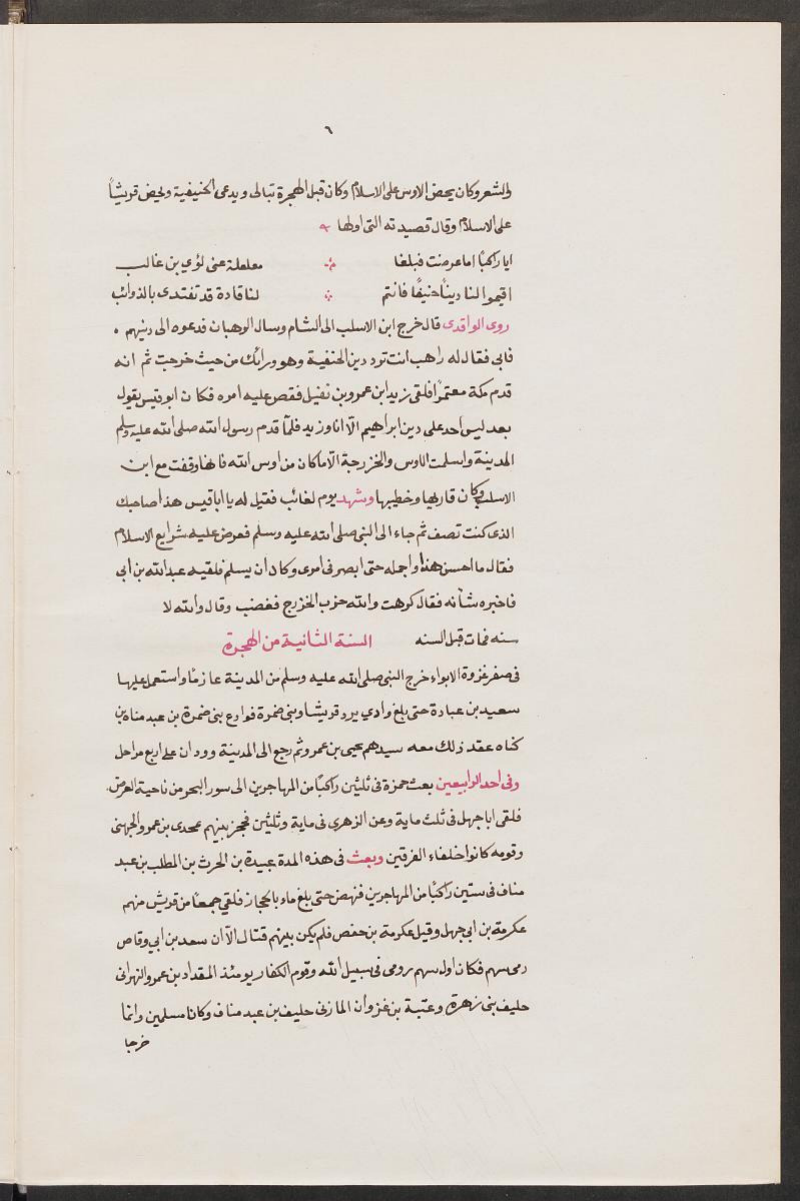 ٦
والشعر وكان يحض الاوس على الاسلام وكان قبل الهجرة تبالى ويدعى الحنيفية ويحض قريشاً
على الاسلام وقال قصيدته التى اولها
ايا راكبًا اما عرضت فبلغا ܀ مغلغلة عنى لؤي بن غالب
اقيموا لنا ديناً حنيفًا فانتم ܀ لنا قادة قد تقتدى بالذوائب
روى الواقدى قال خرج ابن الاسلب الى الشام وسال الوهبان فدعوه الى دينهم
فابى فقال له راهب انت تريد دين الحنفية وهو ورائك من حيث خرجت ثم انه
قدم مكة معتمرًا فلقى زيد ابن عمرو بن نفيل فقص عليه امره فكان ابو قيس يقول
بعد ليس احد على دين ابراهيم الّا انا وزيد فلمّا قدم رسول الله صلى الله عليه وسلم
المدينة واسلمت الاوس والخزرجة الا ماكان من اوس الله فانها وقفت مع ابن
الاسلب وكان قاريها وخطيبها وشهد يوم لغائب فقيل له يا ابا قيس هذا صاحبك
الذى كنت تصف ثم جاء الى النبى صلى الله عليه وسلم فعرض عليه شرايع الاسلام
فقال ما احسن هذا واجمله حتى ابصر فى امرى وكاد ان يسلم فلقيه عبد الله بن ابى
فاخبره شأنه فقال كرهت والله حزب الخزرج فغضب وقال والله لا
سنه فمات قبل السنه السنة الثانية من الهجرة
فى صفر غزوة الابواء خرج النبى صلى الله عليه وسلم من المدينة عازمًا واستعمل عليها
سعيد بن عبادة حتى بلغ وادي يرد قريشا وبنى ضمرة فوادع بنى ضمرة بن عبد مناه بن
كناه عقد ذلك معه سيدهم يحيى بن عمرو ثم رجع الى المدينة وودان على اربع مراحل
وفى احد الرابيعين بعث حمزة فى ثلثين راكبًا من المهاجرين الى سور البحر من ناحية العرض
فلقى ابا جهل فى ثلث ماية وعن الزهرى فى ماية وثلثين فحجز بينهم محمدى بن عمرو الجهنى
وقومه كانوا خلفاء الفرقين وبعث فى هذه المدة عبيدة بن الحرث بن المطلب بن عبد
مناف فى ستين راكبًا من المهاجرين فنهض حتى بلغ ماء بالحجاز فلقي جمعًا من قريش منهم
عكرمة بن ابى جهل وقيل عكرمة بن حفص فلم يكن بينهم قتال الّا ان سعد بن ابي وقاص
رمى سهم فكان اول سهم رومى فى سبيل الله وقوم الكفار يومئذ المقداد بن عمرو النهرانى
حليف بنى زهرة وعتبة بن غزوان المازنى حليف بن عبد مناف وكانا مسلمين وانما
خرجا